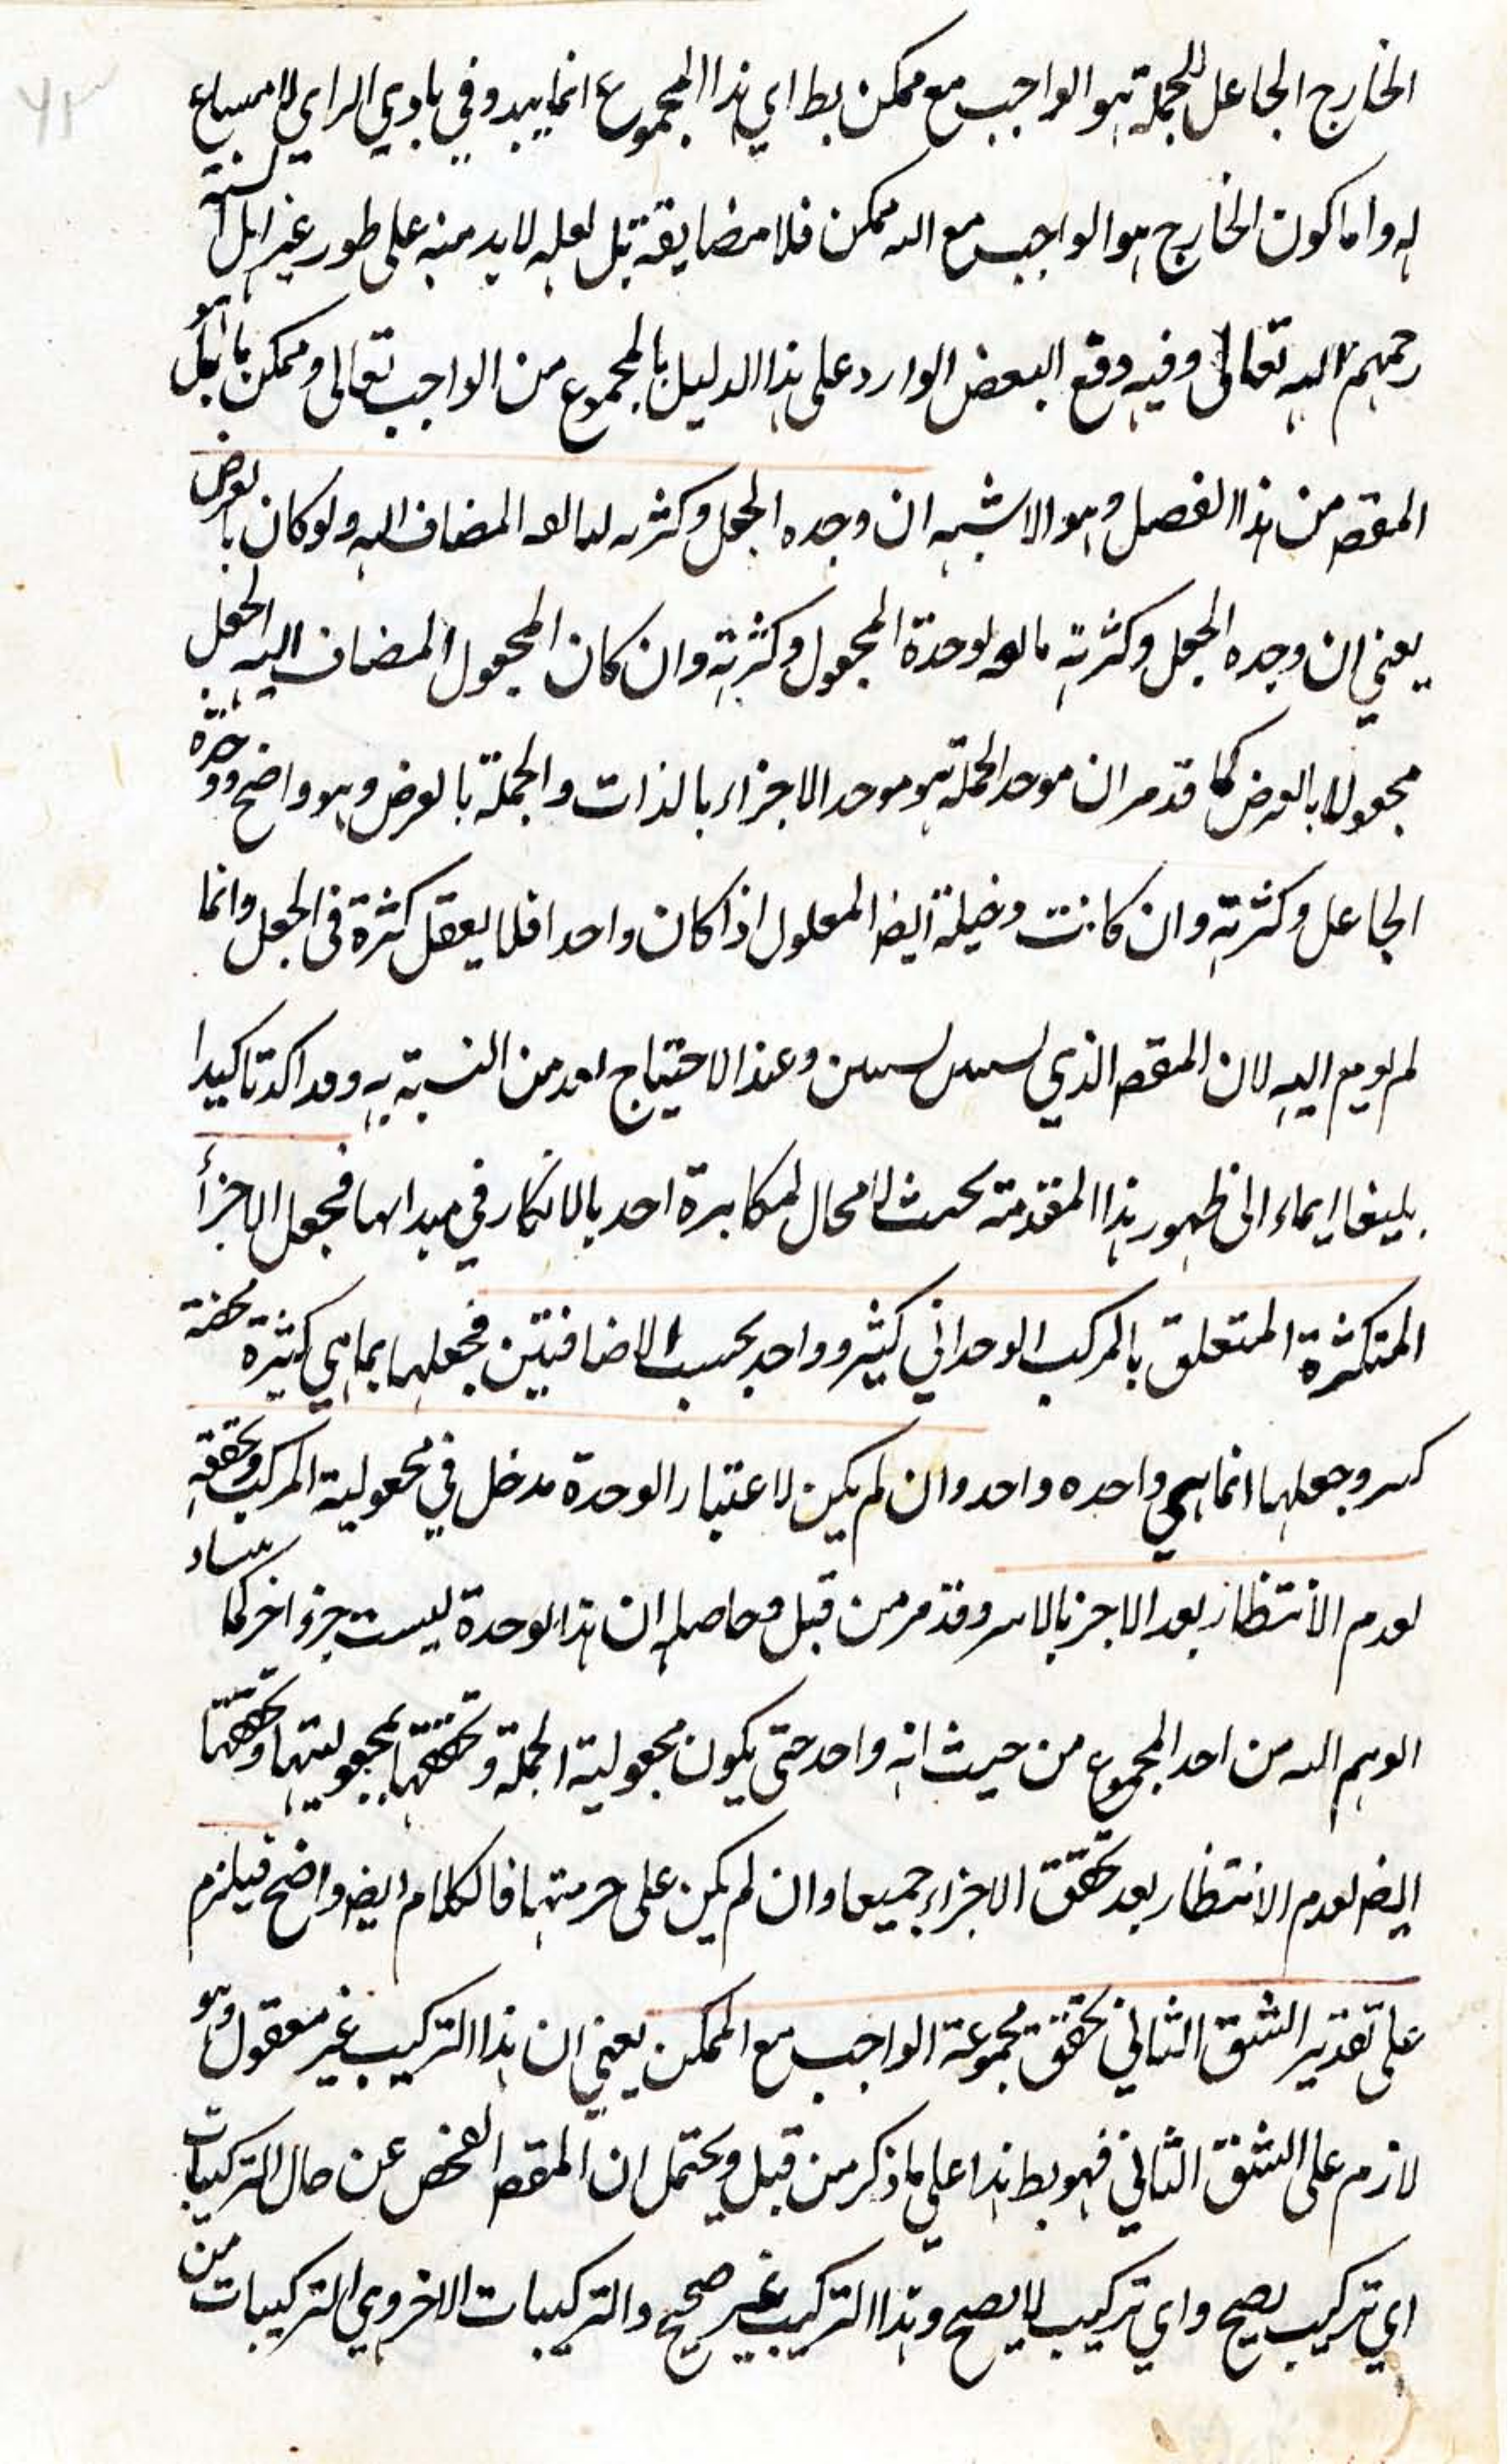 ٦٣
الخارج الجاعل للجملة هو الواجب مع ممكن بط اي هذا المجموع انما يبدو في بادي الراي لا امتناع
له واما كون الخارج هو الواجب مع الممكن فلا مضايقة بل لعله لا بد منه على طور غير اهل السنة
رحمهم الله تعالى وفيه وقع البعض الوارد على هذا الدليل بالمجموع من الواجب تعالى وممكن ما بل هو
المقصد من هذا الفصل وهو الاشبه ان وحده الجعل وكثرته المضاف اليه ولو كان بالعرض
يعني ان وحده الجعل وكثرته لوحدة المجعول وكثرته وان كان المجعول المضاف اليه الجعل
مجعولا بالعرض كما قد مر ان موجد الجملة هو موجد الاجزاء بالذات والجملة بالعرض وهو واضح ووحدة
الجاعل وكثرته وان كانت دخيلة ايضا المعلول اذا كان واحدا فلا يعقل كثرة في الجعل وانما
لم يومى اليه لان المقصد الذي وعند الاحتياج من النسبة به وقد اكد تاكيدا
بليغا ايماء الى ظهور هذا المقدمة بحيث لا مجال لمكابرة احد بالانكار في فجعل الاجزأ
المتكثرة المتعلق بالمركب الوحداني كثير وواحد بحسب الاضافتين فجعلها بما هي كثيرة محضة
كثير وجعلها انما هي واحده واحد وان لم يكن لاعتبار الوحدة مدخل في مجعولية المركب وتحققه
لعدم الانتظار بعد الاجزا بالاسر وقد مر من قبل وحاصله ان هذا الوحدة ليست جزء اخر كما
الوهم من احد المجموع من حيث انه واحد حتى يكون مجعولية الجملة وتحققها بمجعوليتها وتحققها
ايضا لعدم الانتظار بعد تحقق الاجزاء جميعا وان لم يكن على جزئيتها فالكلام ايضا واضح فيلزم
على تقدير الشق الثاني تحقق مجموعة الواجب مع الممكن يعني ان هذا التركيب غير معقول وهو
لازم على الشق الثاني فهو بط هذا على ما ذكر من قبل ويحتمل ان المقصد الفحص عن حال التركيبات
اي تركيب يصح واي تركيب لا يصح وهذا التركيب غير صحيح والتركيبات الاخر وهي التركيبات من